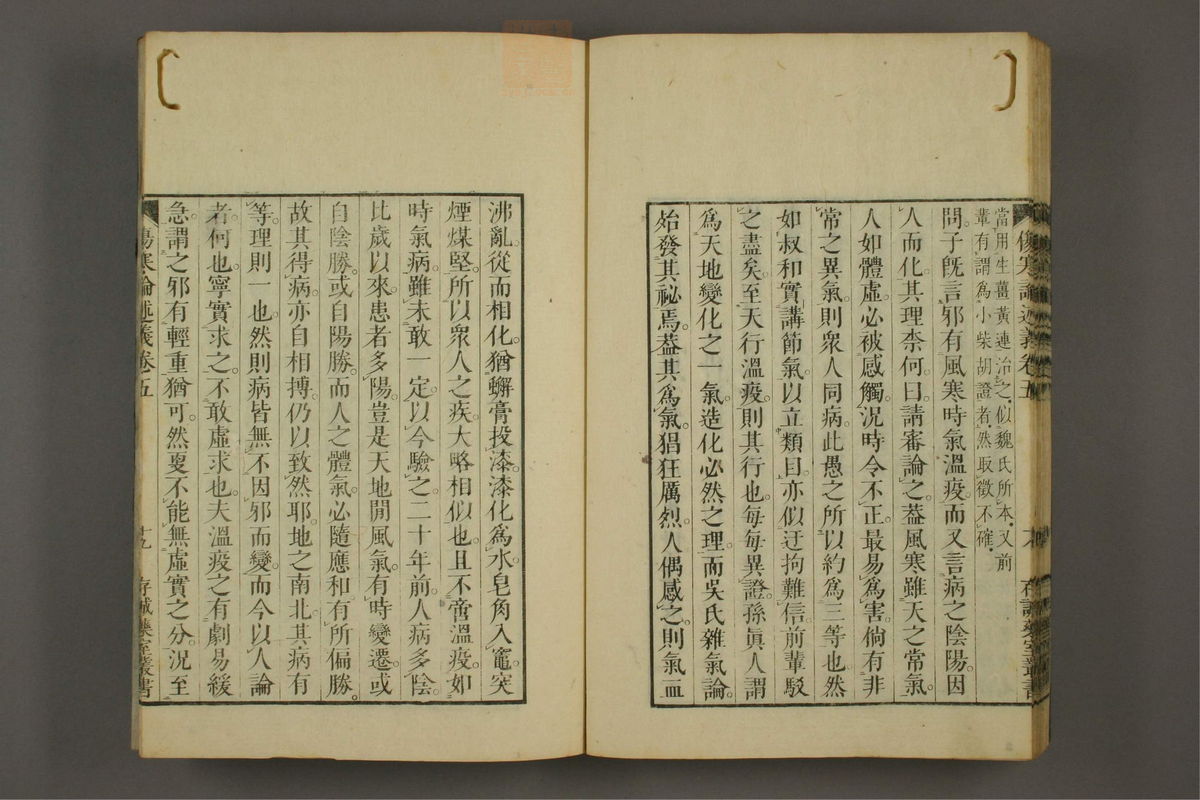 傷寒論述義卷五
存誠藥室叢書
當用生薑黃連治之似魏氏所本又前
輩有謂爲小柴胡證者然取徵不確
問子旣言邪有風寒時氣溫疫而又言病之陰陽因
人而化其理柰何曰請審論之葢風寒雖天之常氣
人如體虛必被感觸況時令不正最易爲害倘有非
常之異氣則衆人同病此愚之所以約爲三等也然
如叔和實講節氣以立類目亦似迂拘難信前輩駁
之盡矣至天行溫疫則其行也每每異證孫眞人謂
爲天地變化之一氣造化必然之理而吳氏雜氣論
始發其祕焉葢其爲氣猖狂厲烈人偶感之則氣血
沸亂從而相化猶蠏膏投漆漆化爲水皂角入竈突
煙煤堅所以衆人之疾大略相似也且不啻溫疫如
時氣病雖未敢一定以今驗之二十年前人病多陰
比歲以來患者多陽豈是天地閒風氣有時變遷或
自陰勝或自陽勝而人之體氣必隨應和有所偏勝
故其得病亦自相搏仍以致然耶地之南北其病有
等理則一也然則病皆無不因邪而變而今以人論
者何也寧實求之不敢虛求也夫溫疫之有劇易緩
急謂之邪有輕重猶可然要不能無虛實之分況至
傷寒論述義卷五
十九
存誠藥室叢書